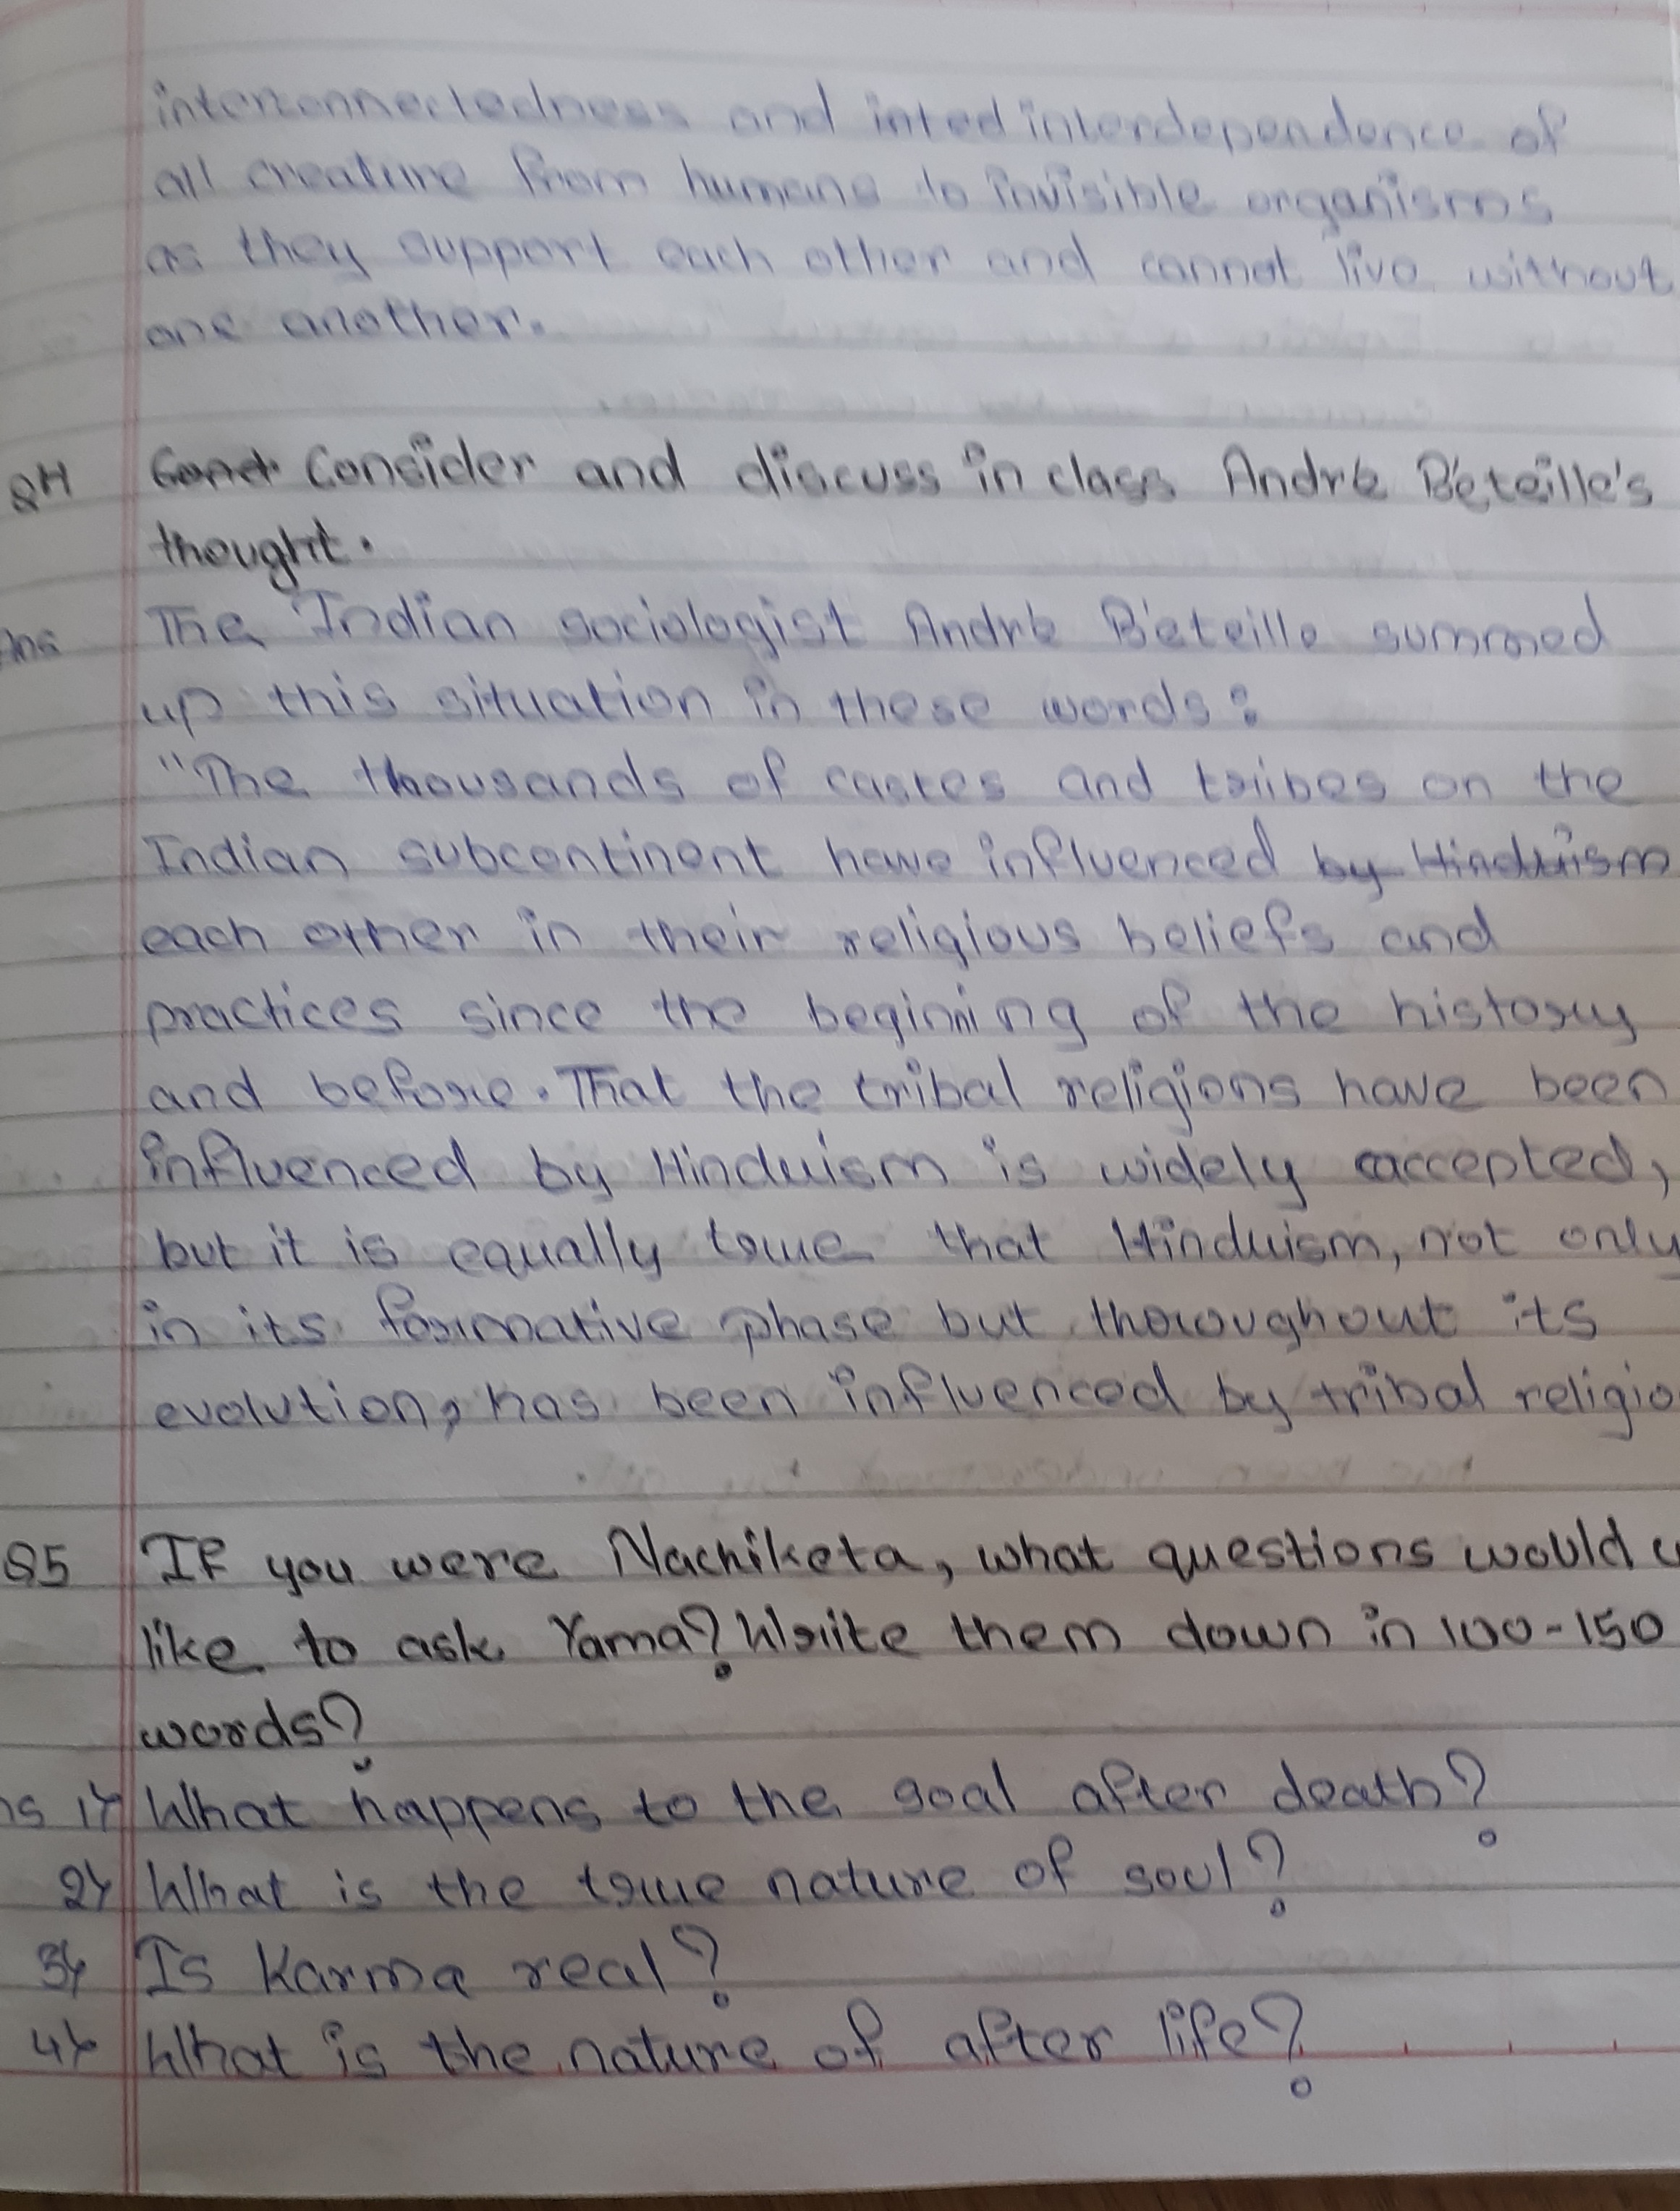 interconnectedness and inted interdependence of
all creature from humans to invisible organisms
as they support each other and cannot live without
one another.
Q4 Consider and discuss in class André Béteille's
thought.
Ans The Indian sociologist André Béteille summed
up this situation in these words:
"The thousands of castes and tribes on the
Indian subcontinent have influenced by Hinduism
each other in their religious beliefs and
practices since the beginning of the history
and before. That the tribal religions have been
influenced by Hinduism is widely accepted,
but it is equally true that Hinduism, not only
in its formative phase but thoroughout its
evolution, has been influenced by tribal religio
Q5 If you were Nachiketa, what questions would u
like to ask Yama? Write them down in 100-150
words?
ns 1) What happens to the soal after death?
2) What is the true nature of soul?
3) Is Karma real?
4) What is the nature of after life?